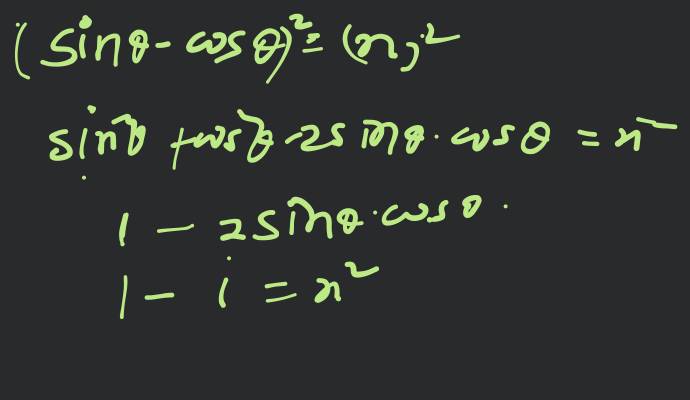 (sinθ - cosθ)² = (x)²
sin²θ + cos²θ - 2sinθ·cosθ = x²
1 - 2sinθ·cosθ.
1 - 1 = x²